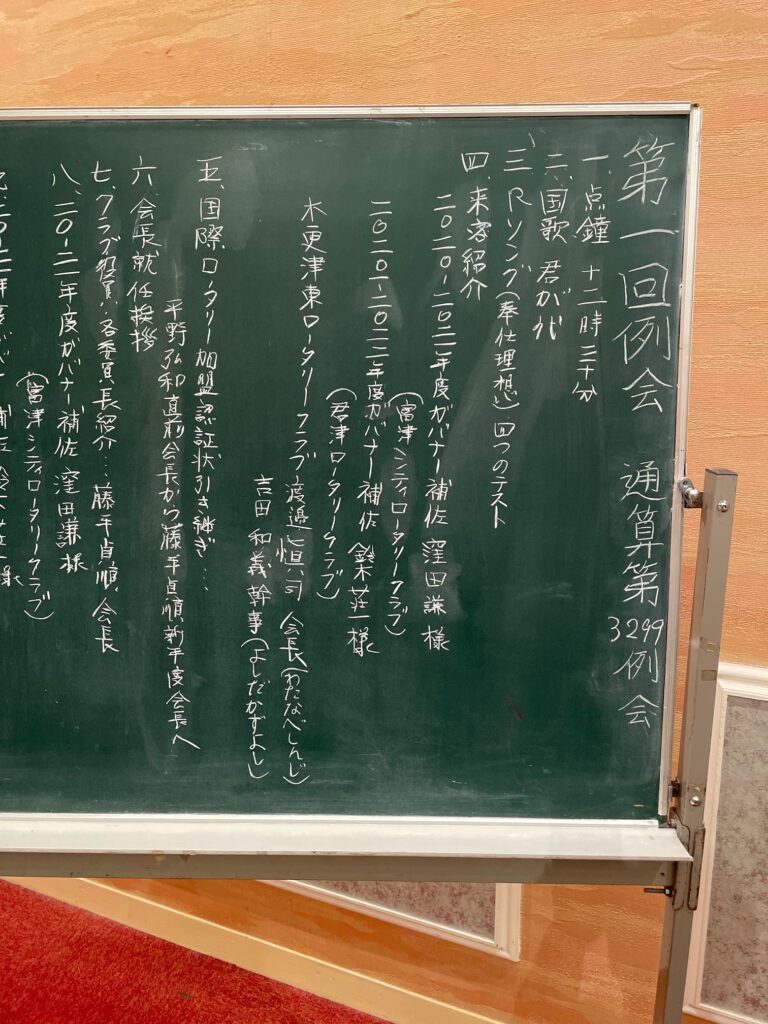 第一回例会 通算第3299例会
一、点鐘 十二時三十分
二、国歌 君が代
三、Rソング(奉仕理想)四つのテスト
四、来客紹介
二〇二〇-二〇二一年度ガバナー補佐 窪田謙様
(富津シティロータリークラブ)
二〇二一-二〇二二年度ガバナー補佐 鈴木荘一様
(君津ロータリークラブ)
木更津東ロータリークラブ 渡邉恒司 会長(わたなべしんじ)
吉田和義幹事(よしだかずよし)
五、国際ロータリー加盟認証状引き継ぎ...
平野弘和直前会長から藤平貞順新年度会長へ
六、会長就任挨拶
七、クラブ役員・各委員長紹介... 藤平貞順会長
八、二〇-二一年度ガバナー補佐 窪田謙様
(富津シティロータリークラブ)